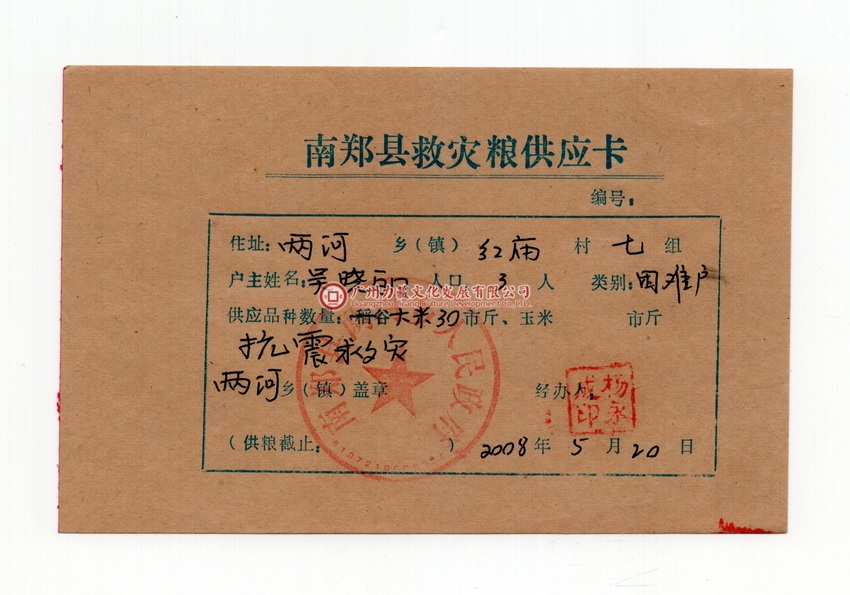 南郑县救灾粮供应卡
编号：
住址：两河 乡（镇）红庙 村 七 组
户主姓名：吴晓 人口 3 人 类别：困难户
广州力诚文化发展有限公司
供应品种数量：稻谷大米30市斤、玉米 市斤
抗震救灾
两河乡（镇）盖章 经办人：
杨永成印
人民政府
（供粮截止： ）2008年5月20日